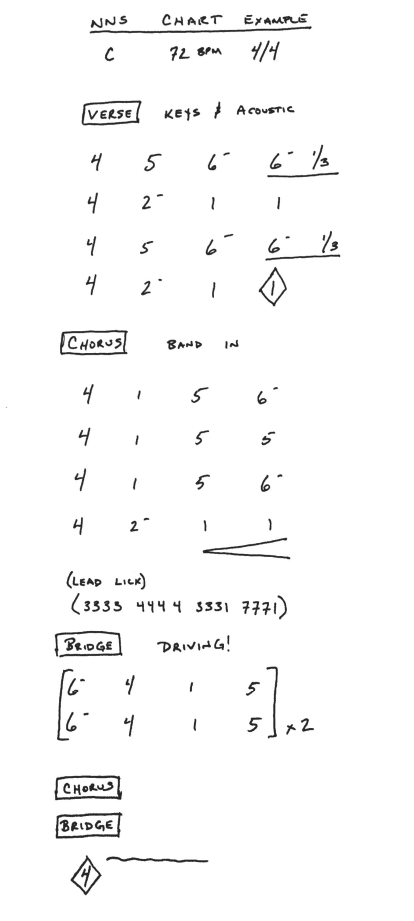 NNS CHART EXAMPLE
C 72 BPM 4/4
VERSE KEYS & ACOUSTIC
4 5 6- 6- 1/3
4 2- 1 1
4 5 6- 6- 1/3
4 2- 1 1
CHORUS BAND IN
4 1 5 6-
4 1 5 5
4 1 5 6-
4 2- 1 1
(LEAD LICK)
(3333 4444 3331 7771)
BRIDGE DRIVING!
[6- 4 1 5
6- 4 1 5] x2
CHORUS
BRIDGE
4